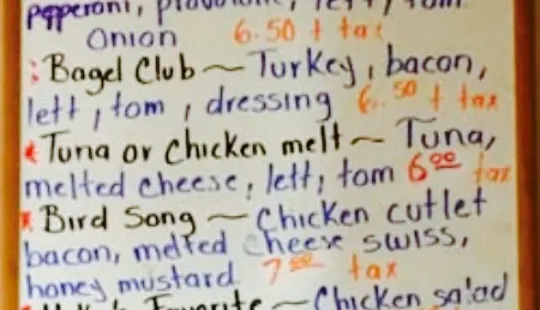 pepperoni, provolone, lett, tom
Onion 6.50 + tax
Bagel Club ~ Turkey, bacon,
lett, tom, dressing 6.50 + tax
Tuna or Chicken melt ~ Tuna,
melted cheese, lett, tom 6.00 tax
Bird Song ~ Chicken cutlet
bacon, melted cheese swiss,
honey mustard 7.50 tax
Favorite ~ Chicken salad